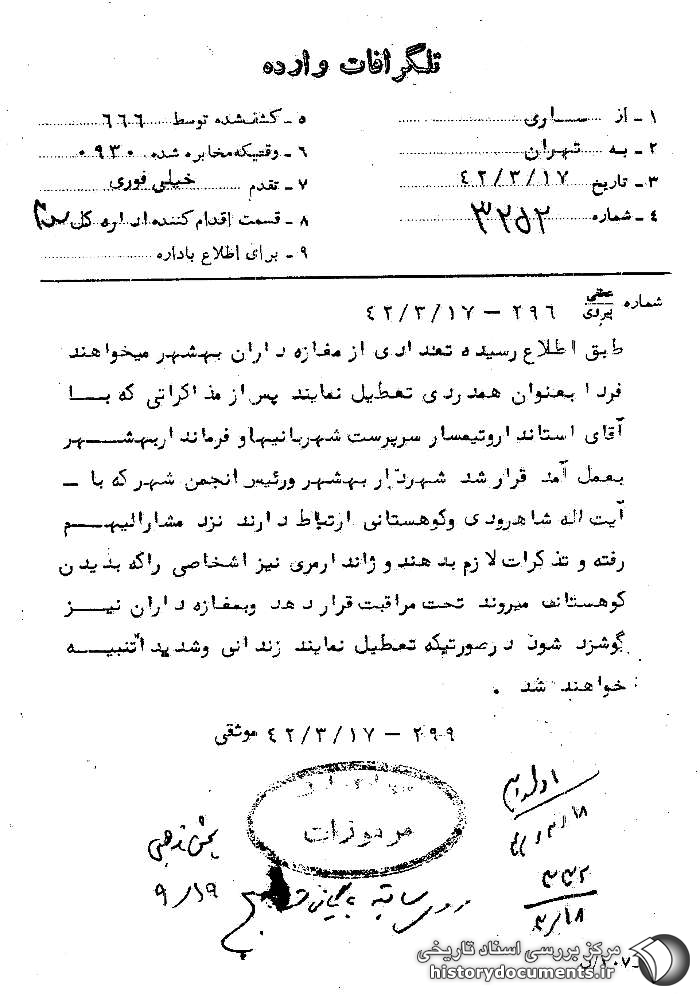 تلگرافات وارده
۱ ـ از ساری
۲ ـ به تهران
۳ ـ تاریخ ۴۲/۳/۱۷
۴ ـ شماره ۳۲۵۲
۵ ـ کشف‌شده توسط ۶۶۶
۶ ـ وقتیکه مخابره شده ۰۹۳۰
۷ ـ تقدم خیلی فوری
۸ ـ قسمت اقدام کننده اداره کل
۹ ـ برای اطلاع باداره
شماره عطفی پیروی ۲۹۶ – ۴۲/۳/۱۷
طبق اطلاع رسیده تعدادی از مغازه داران بهشهر میخواهند
فردا بعنوان همدردی تعطیل نمایند پس از مذاکراتی که بــا
آقای استاندار وتیمسار سرپرست شهربانیها و فرماندار بهشـــهر
بعمل آمد قرار شد شهردار بهشهر ورئیس انجمن شهر که با ـ
آیت اله شاهرودی وکوهستانی ارتباط دارند نزد مشارالیهــم
رفته و تذکرات لازم بدهند و ژاندارمری نیز اشخاصی راکه بدیدن
کوهستانی میروند تحت مراقبت قرار دهد وبمغازه داران نیــز
گوشزد شود درصورتیکه تعطیل نمایند زندانی وشدیداً تنبیــه
خواهند شد .
۲۹۹ – ۴۲/۳/۱۷ موثقی
مرموزات
بخش مذهبی
۹/۱۹
۳۳۲
۳/۱۸
مرکز بررسی اسناد تاریخی
historydocuments.ir